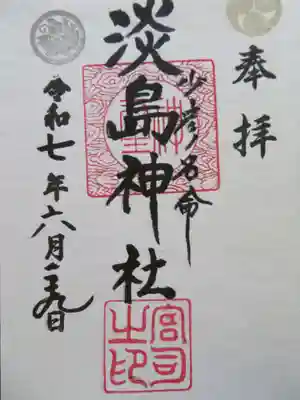 奉拝
少彦名命
淡島神社
令和七年六月二十九日
宮司之印